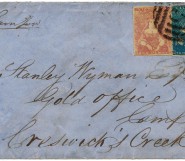 Stanley Wyman Esq
Gold office
Creswick's Creek